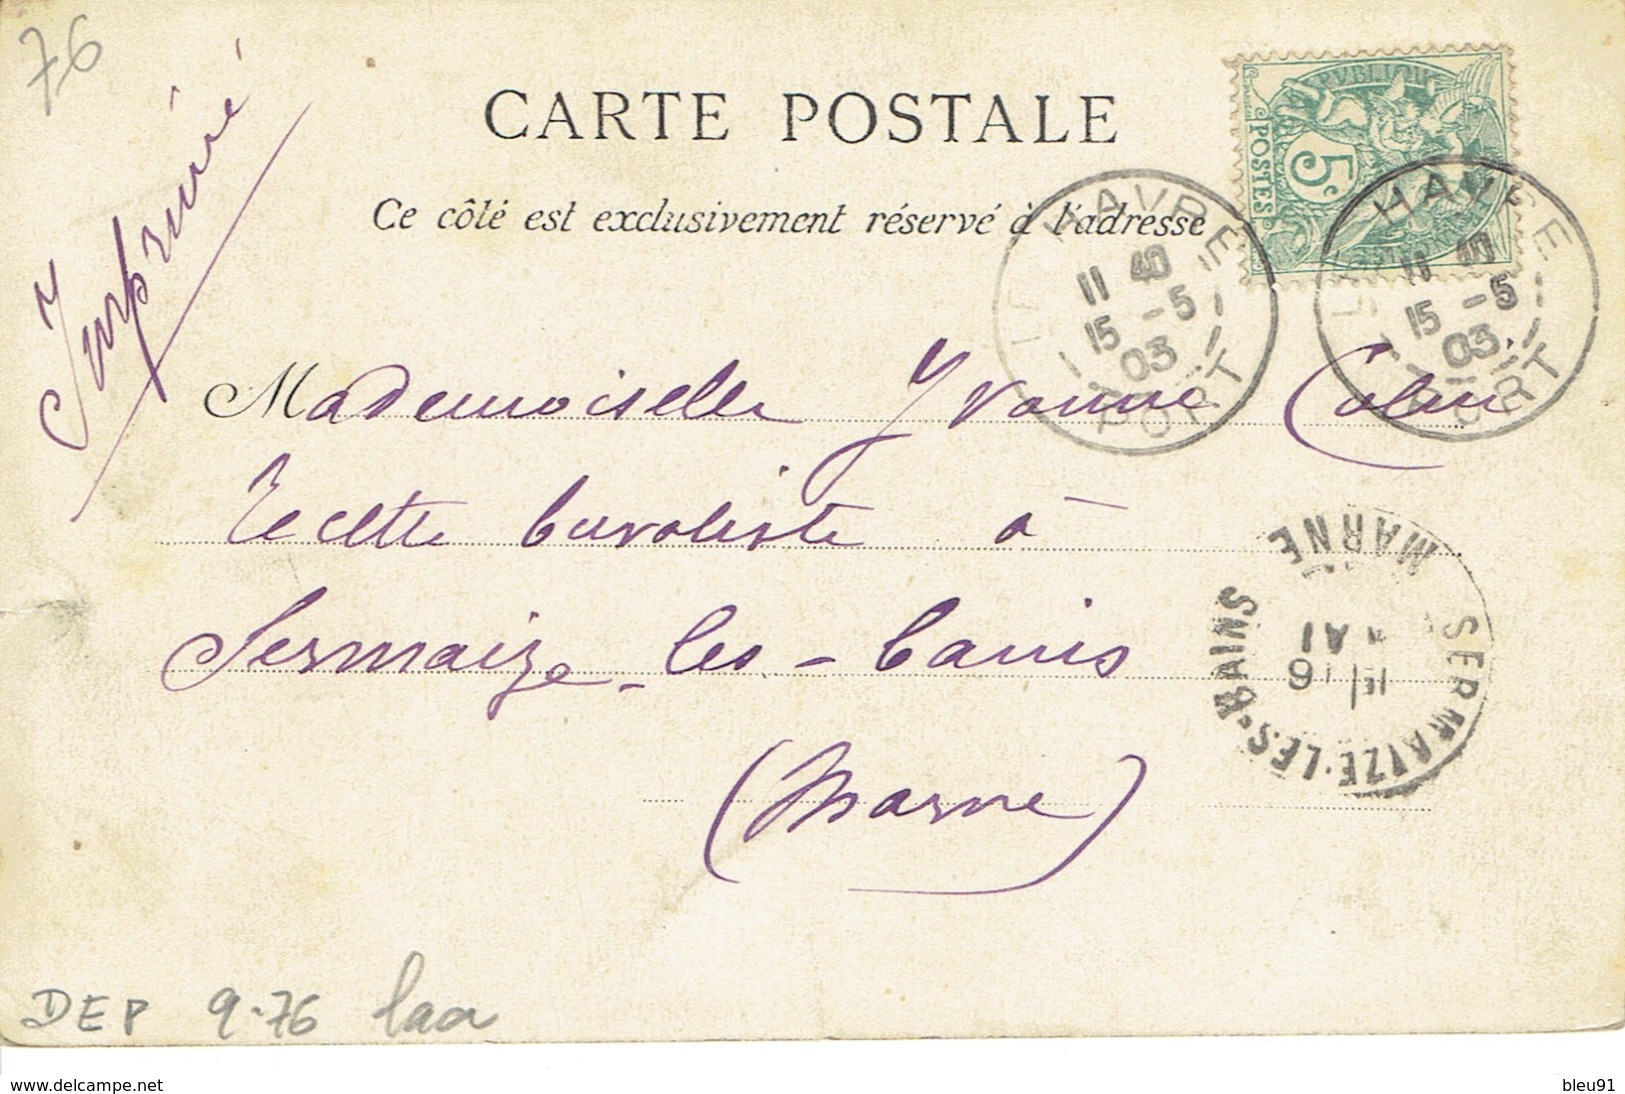 76
Imprimé
CARTE POSTALE
Ce côté est exclusivement réservé à l'adresse
RÉPUBLIQUE
POSTES 5c
LE HAVRE
11 40
15 -5
03
PORT
LE HAVRE
11 40
15 -5
03
PORT
Mademoiselle Yvonne Colin
Recette buraliste à
Sermaize-les-bains
(Marne)
SERMAIZE-LES-BAINS
MARNE
DEP 9.76
www.delcampe.net
bleu91